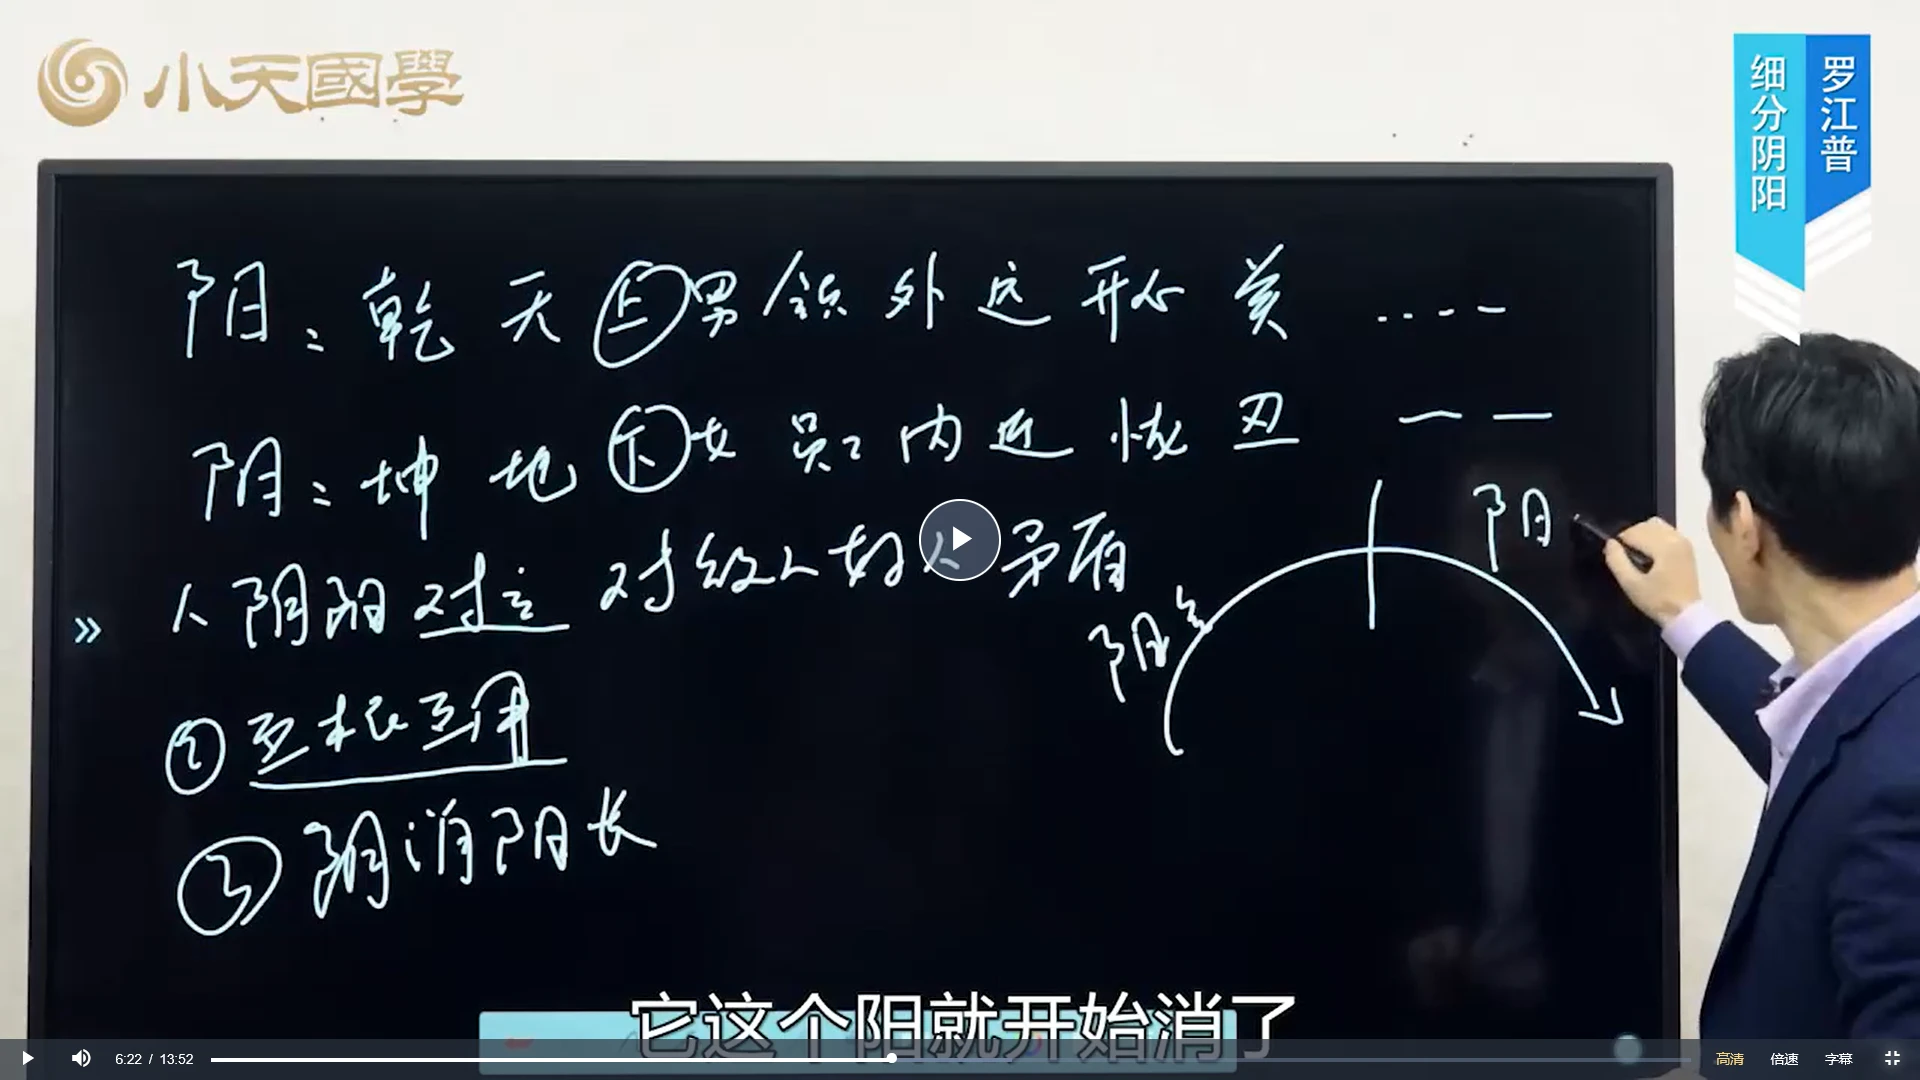 小天國學
罗江普
细分阴阳
阳：乾 天 上 男 领 外 远 开心 美 ....
阴：坤 地 下 女 员工 内 近 忧 丑 — —
阴阳对立 对 矛盾
阳气
阳
② 互根互用
③ 阴消阳长
它这个阳就开始消了
6:22 / 13:52
高清 倍速 字幕